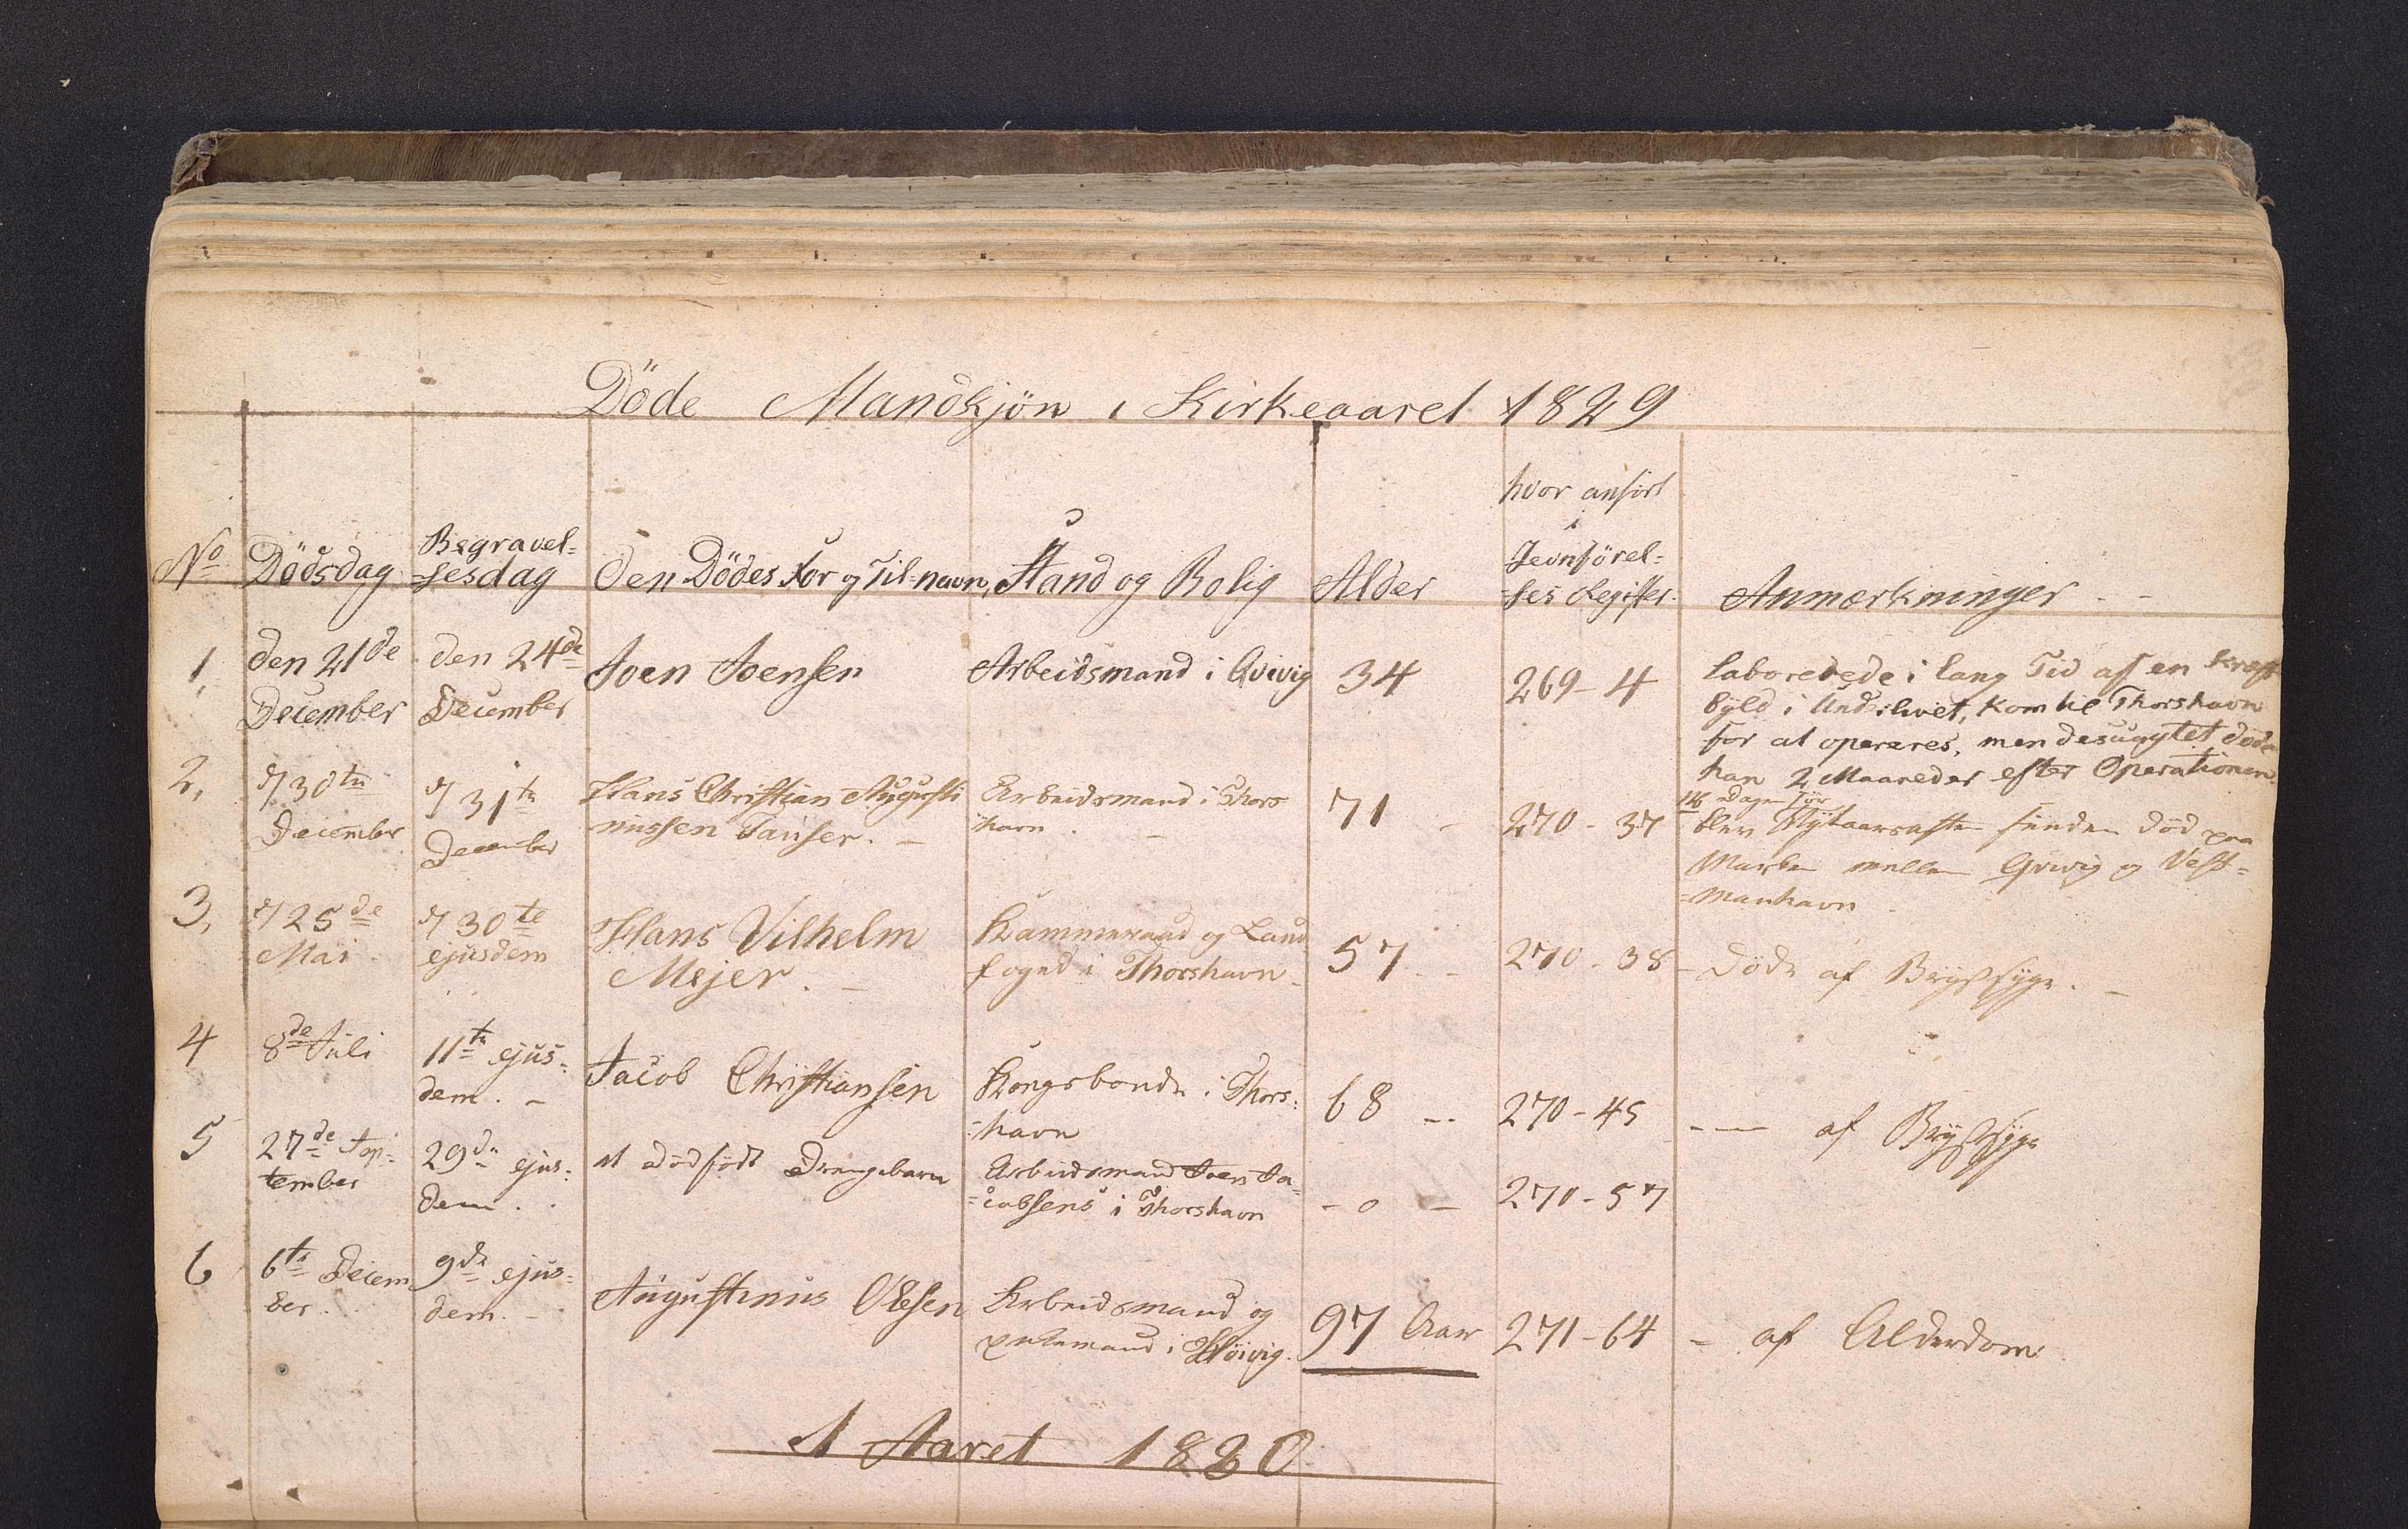 Döde Mandkjön i Kirkeaaret 1829
No
Dödsdag
Begravel=
=sesdag
Den Dödes For og Til=navn,
Stand og Bolig
Alder
hvor anfört
i
Jevnförel=
=ses Register.
Anmærkninger - -
1,
den 21de
December
den 24de
December
Joen Joensen
Arbeidsmand i Qvivig
34
269 - 4
laborerede i lang Tid af en Kræft
byld i Underlivet, kom til Thorshavn
for at opereres, men desuagtet döde
han 2 Maaneder efter Operationen.
2,
d/ 30te
December
d/ 31te
December
Hans Christian Augusti
nussen Tausen. -
Arbeidsmand i Thors
havn . -
71 -
270 - 37
Dagen för
blev Nytaarsaften funden död paa
Marken mellem Qvivig og Vest=
=manhavn
3,
d/ 25de
Mai -
d/ 30te
ejusdem
Hans Vilhelm
Mejer. -
Kammeraad og Land
foged i Thorshavn -
57 - -
270 - 38
- Döde af Brystsyge. -
4
8de Juli
11te ejus=
dem. -
Jacob Christiansen
Kongsbonde i Thors=
=havn
68 - -
270 - 45
- — af Brystsyge
5
27de Sep=
tember
29de ejus=
dem . .
et dödfödt Drengebarn
Arbeidsmand Joen Ja=
=cobsens i Thorshavn
- 0 -
270 - 57
6
6te Decem
ber . .
9de ejus=
dem. -
Augustinus Olesen
Arbeidsmand og
i Höivig.
97 Aar
271 - 64
- af Alderdom
I Aaret 1830